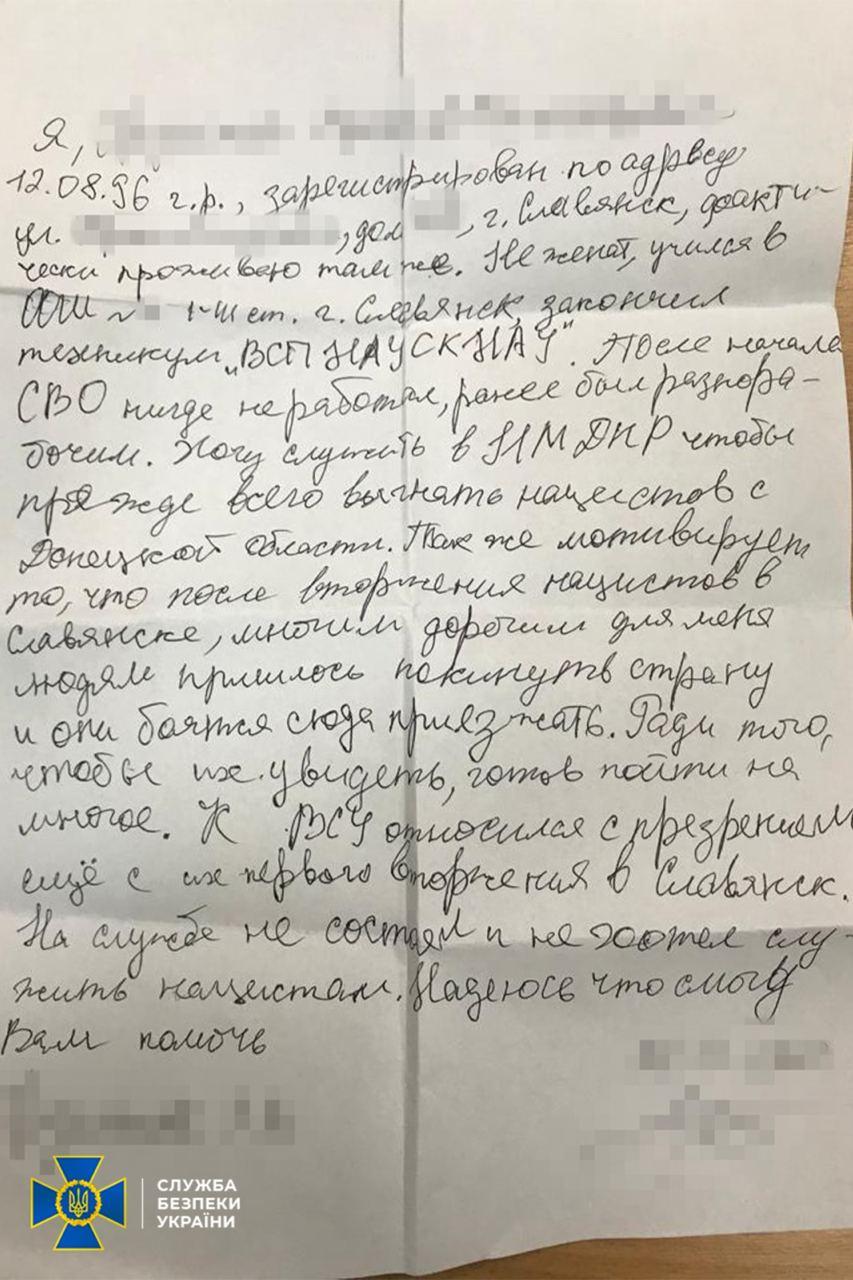 Я,
12.08.96 г.р., зарегистрирован по адресу
ул. , дом , г. Славянск, факти-
чески проживаю там же. Не женат, учился в
ОШ № I-III ст. г. Славянск, закончил
техникум „ВСП НАУ СК НАУ". После начала
СВО нигде не работал, ранее был разнора-
бочим. Хочу служить в НМ ДНР чтобы
прежде всего выгнать нацистов с
Донецкой области. Так же мотивирует
то, что после вторжения нацистов в
Славянске, многим дорогим для меня
людям пришлось покинуть страну
и они боятся сюда приезжать. Ради того,
чтобы их увидеть, готов пойти на
многое. К ВСУ относился с презрением
ещё с их первого вторжения в Славянск.
На службе не состоял и не хотел слу-
жить нацистам. Надеюсь что смогу
Вам помочь
СЛУЖБА
БЕЗПЕКИ
УКРАЇНИ